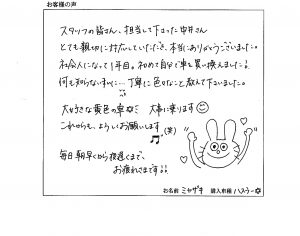 お客様の声
スタッフの皆さん、担当して下さった中井さん
とても親切に対応していただき、本当にありがとうございました。
社会人になって1年目。初めて自分で車を買い換えました!
何も知らない私に…丁寧に色々なこと教えて下さいました。
大好きな黄色の車 大事に乗ります
これからも、よろしくお願いします (笑)
毎日朝早くから夜遅くまで、
お疲れさまです!!
お名前 ミヤザキ 購入車種 ハスラー